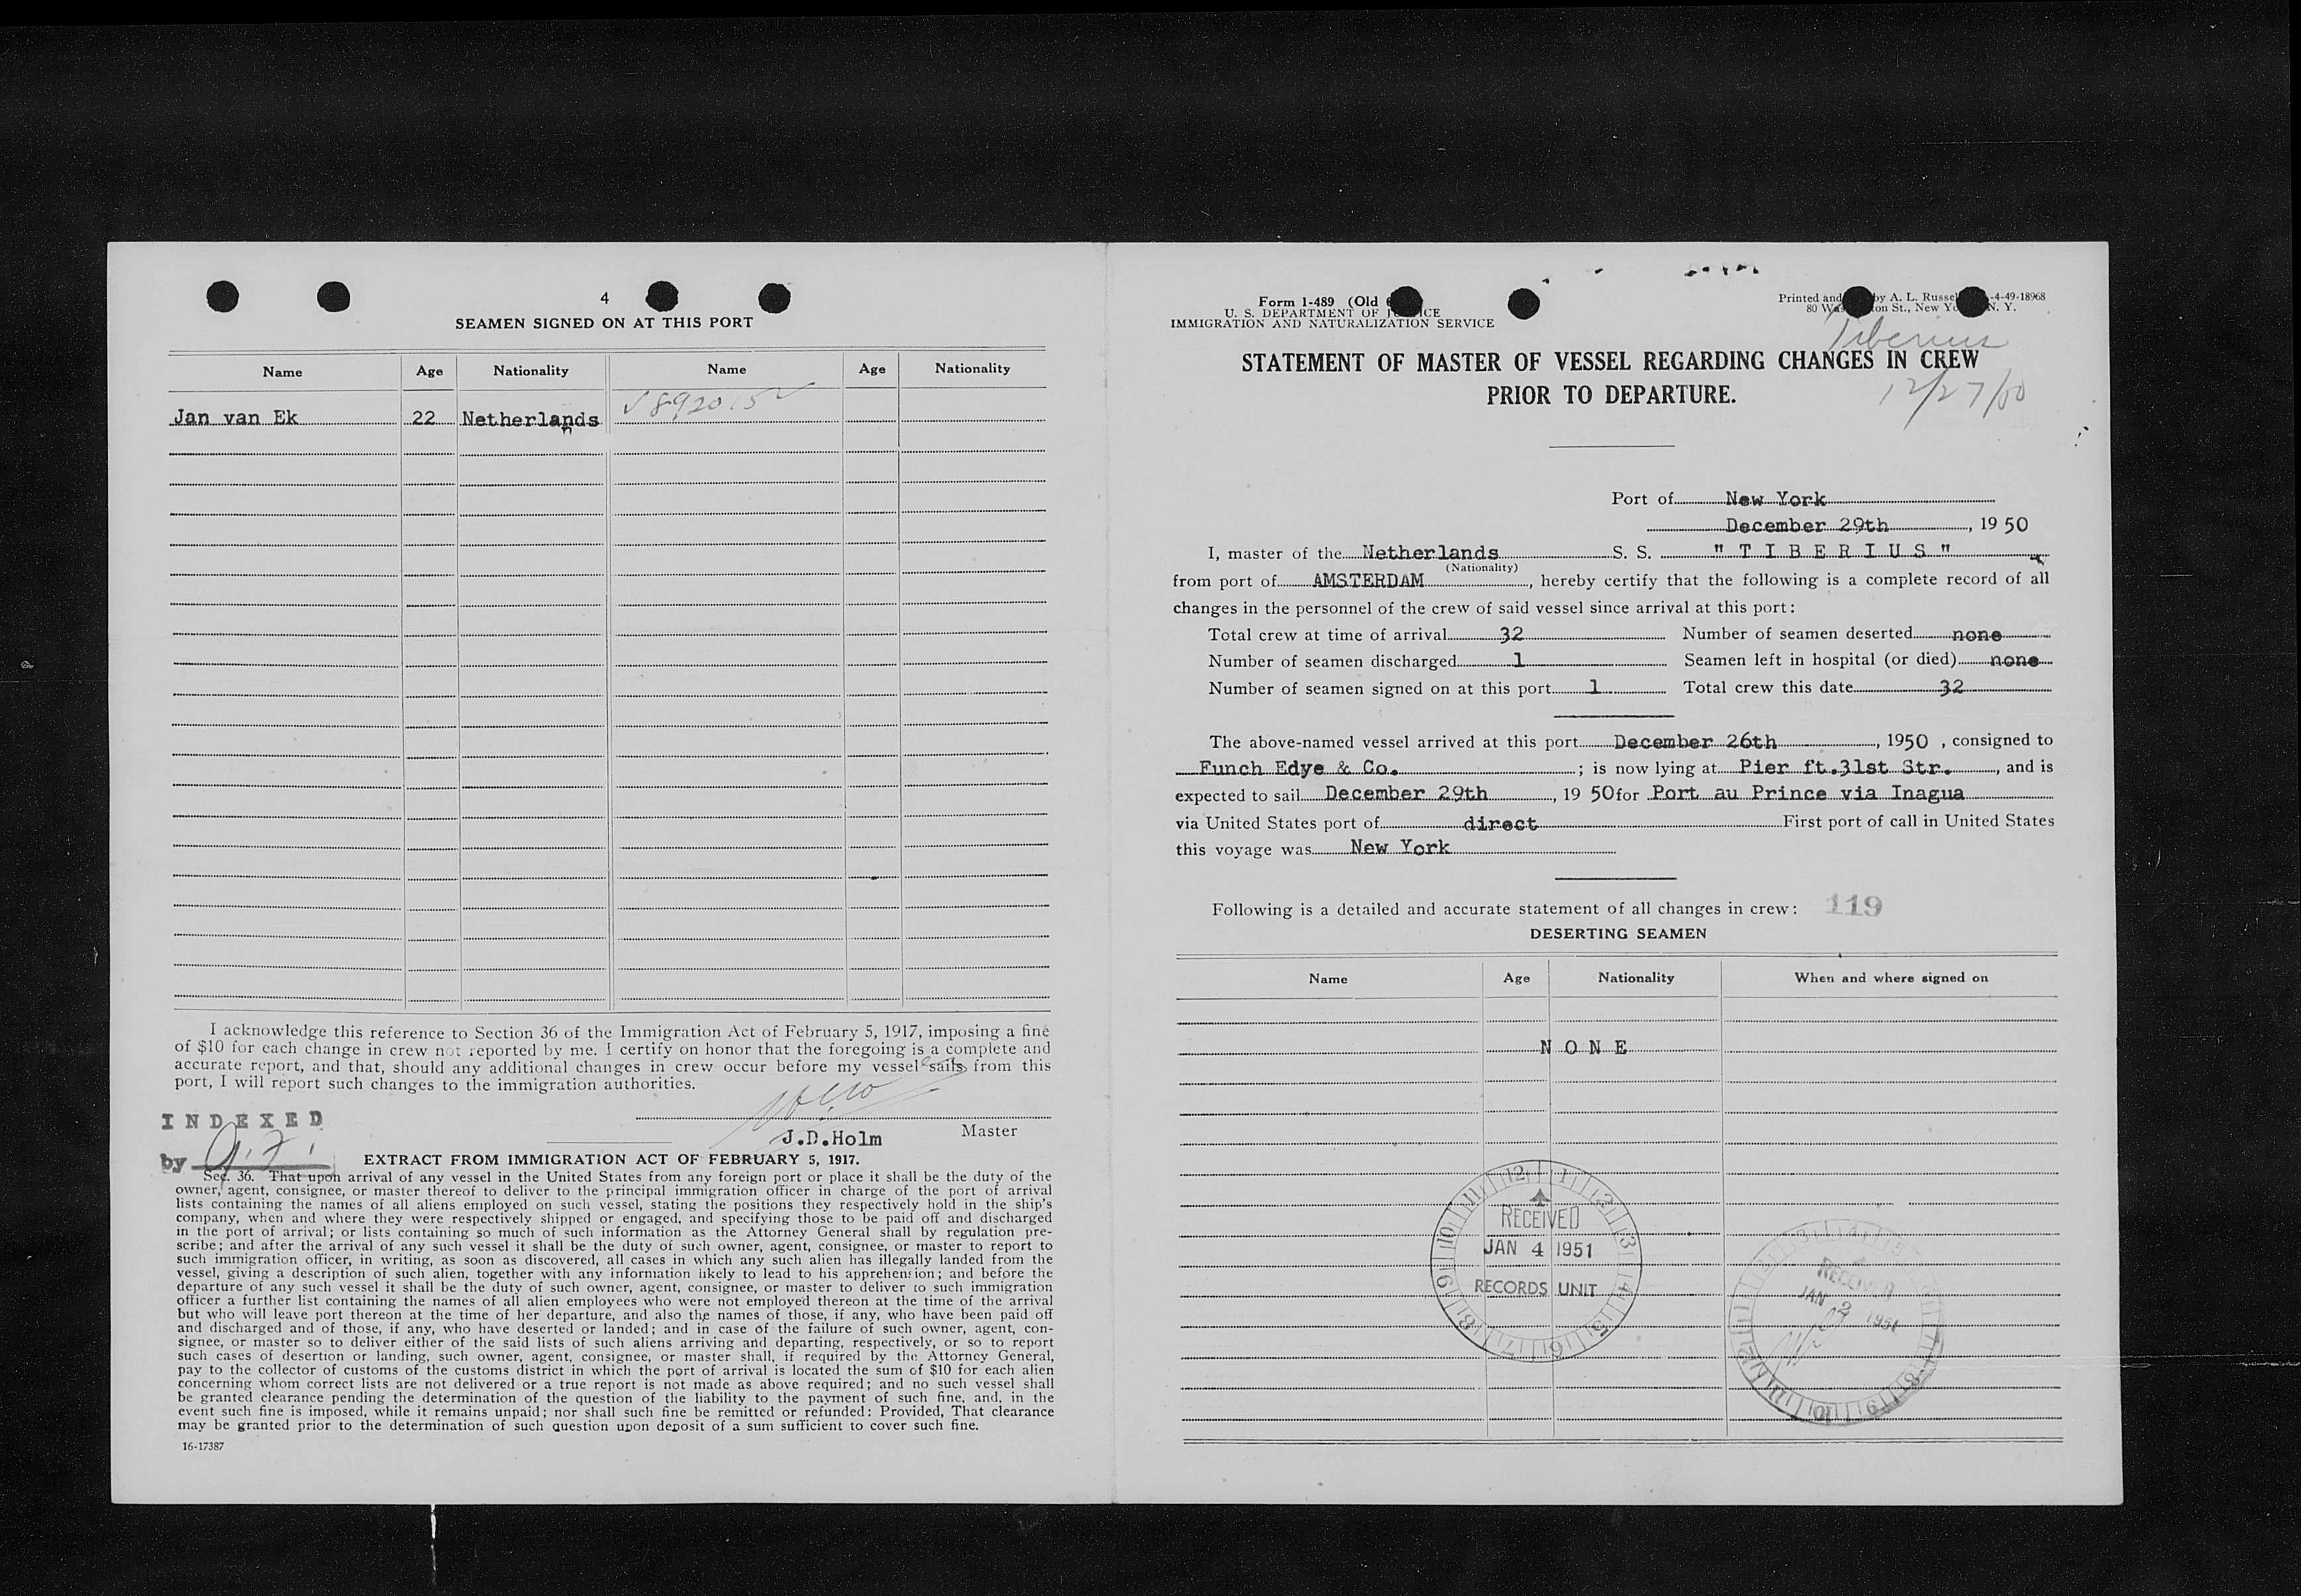 4
SEAMEN SIGNED ON AT THIS PORT
Name Age Nationality Name Age Nationality
Jan van Ek 22 Netherlands
I acknowledge this reference to Section 36 of the Immigration Act of February 5, 1917, imposing a fine
of $10 for each change in crew not reported by me. I certify on honor that the foregoing is a complete and
accurate report, and that, should any additional changes in crew occur before my vessel sails from this
port, I will report such changes to the immigration authorities.
INDEXED
J.D.Holm Master
by
EXTRACT FROM IMMIGRATION ACT OF FEBRUARY 5, 1917.
Sec. 36. That upon arrival of any vessel in the United States from any foreign port or place it shall be the duty of the
owner, agent, consignee, or master thereof to deliver to the principal immigration officer in charge of the port of arrival
lists containing the names of all aliens employed on such vessel, stating the positions they respectively hold in the ship's
company, when and where they were respectively shipped or engaged, and specifying those to be paid off and discharged
in the port of arrival; or lists containing so much of such information as the Attorney General shall by regulation pre-
scribe; and after the arrival of any such vessel it shall be the duty of such owner, agent, consignee, or master to report to
such immigration officer, in writing, as soon as discovered, all cases in which any such alien has illegally landed from the
vessel, giving a description of such alien, together with any information likely to lead to his apprehension; and before the
departure of any such vessel it shall be the duty of such owner, agent, consignee, or master to deliver to such immigration
officer a further list containing the names of all alien employees who were not employed thereon at the time of the arrival
but who will leave port thereon at the time of her departure, and also the names of those, if any, who have been paid off
and discharged and of those, if any, who have deserted or landed; and in case of the failure of such owner, agent, con-
signee, or master so to deliver either of the said lists of such aliens arriving and departing, respectively, or so to report
such cases of desertion or landing, such owner, agent, consignee, or master shall, if required by the Attorney General,
pay to the collector of customs of the customs district in which the port of arrival is located the sum of $10 for each alien
concerning whom correct lists are not delivered or a true report is not made as above required; and no such vessel shall
be granted clearance pending the determination of the question of the liability to the payment of such fine, and, in the
event such fine is imposed, while it remains unpaid; nor shall such fine be remitted or refunded: Provided, That clearance
may be granted prior to the determination of such question upon deposit of a sum sufficient to cover such fine.
16-17387
Form 1-489 (Old
U. S. DEPARTMENT OF JUSTICE
IMMIGRATION AND NATURALIZATION SERVICE
Printed and by A. L. Russel -4-49-18968
80 Washington St., New York N. Y.
Tiberius
STATEMENT OF MASTER OF VESSEL REGARDING CHANGES IN CREW
PRIOR TO DEPARTURE.
12/27/50
Port of New York
December 29th, 19 50
I, master of the Netherlands S. S. "TIBERIUS"
(Nationality)
from port of AMSTERDAM, hereby certify that the following is a complete record of all
changes in the personnel of the crew of said vessel since arrival at this port:
Total crew at time of arrival 32 Number of seamen deserted none
Number of seamen discharged 1 Seamen left in hospital (or died) none
Number of seamen signed on at this port 1 Total crew this date 32
The above-named vessel arrived at this port December 26th, 1950, consigned to
Funch Edye & Co.; is now lying at Pier ft.31st Str., and is
expected to sail December 29th, 19 50 for Port au Prince via Inagua
via United States port of direct First port of call in United States
this voyage was New York
Following is a detailed and accurate statement of all changes in crew: 119
DESERTING SEAMEN
Name Age Nationality When and where signed on
NONE
12 1 2 3 4 5 6 7 8 9 10 11
RECEIVED
JAN 4 1951
RECORDS UNIT
RECEIVED
JAN 2 1951